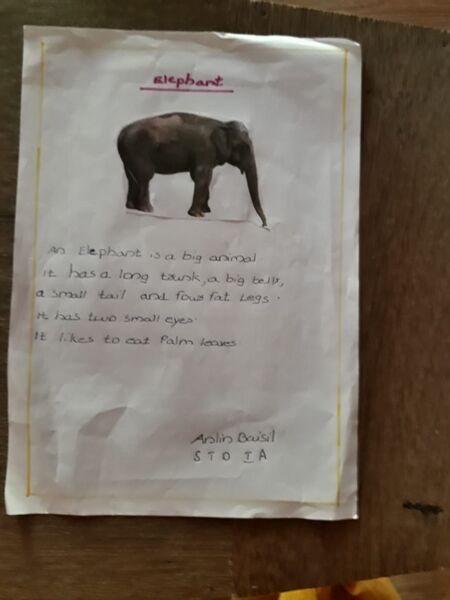 Elephant
An Elephant is a big animal
It has a long trunk, a big belly,
a small tail and four fat Legs.
It has two small eyes.
It likes to eat Palm leaves
Anlin Baisil
STD I A